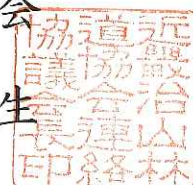 会
生
近畿治山林
道協会連絡
協議会長印